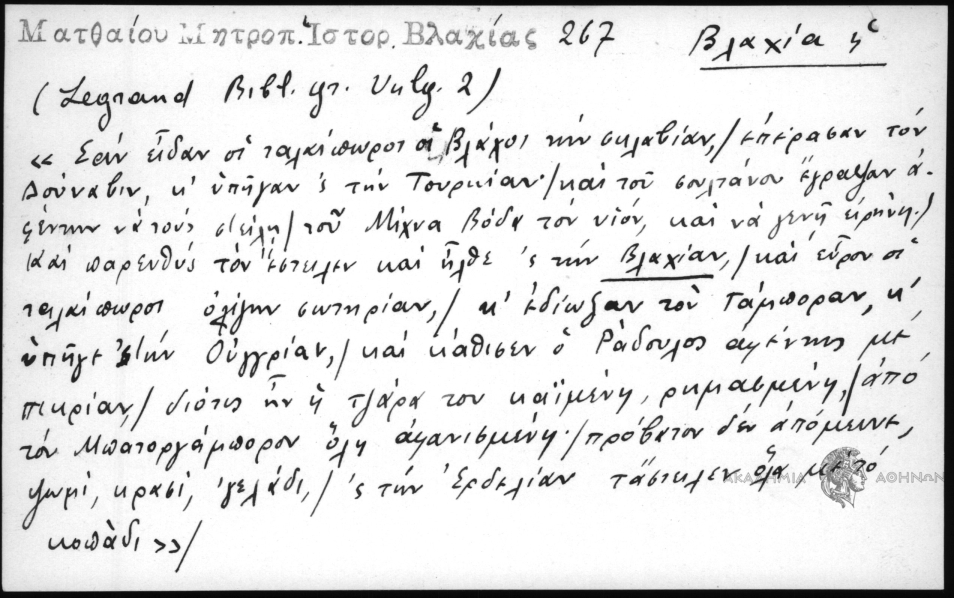 Ματθαίου Μητροπ. Ἱστορ. Βλαχίας 267 Βλαχία ἡ
(Legrand Bibl. gr. Vulg. 2)
« Σὰν εἶδαν οἱ ταλαίπωροι οἱ Βλάχοι τὴν σκλαβίαν, / ἐπέρασαν τὸν
Δούναβιν, κ' ὑπῆγαν 'ς τὴν Τουρκίαν· / καὶ τοῦ σουλτάνου ἔγραψαν ἀ-
φέντην νὰ τοὺς στείλῃ / τοῦ Μίχνα βόδα τὸν υἱόν, καὶ νὰ γενῇ εἰρήνη. /
Καὶ παρευθὺς τὸν ἔστειλεν καὶ ἦλθε 'ς τὴν Βλαχίαν, / καὶ εὗρον οἱ
ταλαίπωροι ὀλίγην σωτηρίαν, / κ' ἐδίωξαν τὸν Γάμπορον, κ'
ὑπῆγε 'ς τὴν Οὐγγρίαν, / καὶ κάθισεν ὁ Ράδουλος αφέντης μὲ
πικρίαν, / διότις ἦν ἡ τζάρα του καϊμένη, ρημασμένη, / ἀπὸ
τὸν Μπατοργάμπορον ὅλη ἀφανισμένη· / πρόβατον δὲν ἀπόμεινε,
ψωμί, κρασί, 'γελάδι, / 'ς τὴν Ἐρδελίαν τἄστειλεν ὅλα μὲ τὸ
κοπάδι >> /
ΑΚΑΔΗΜΙΑ ΑΘΗΝΩΝ